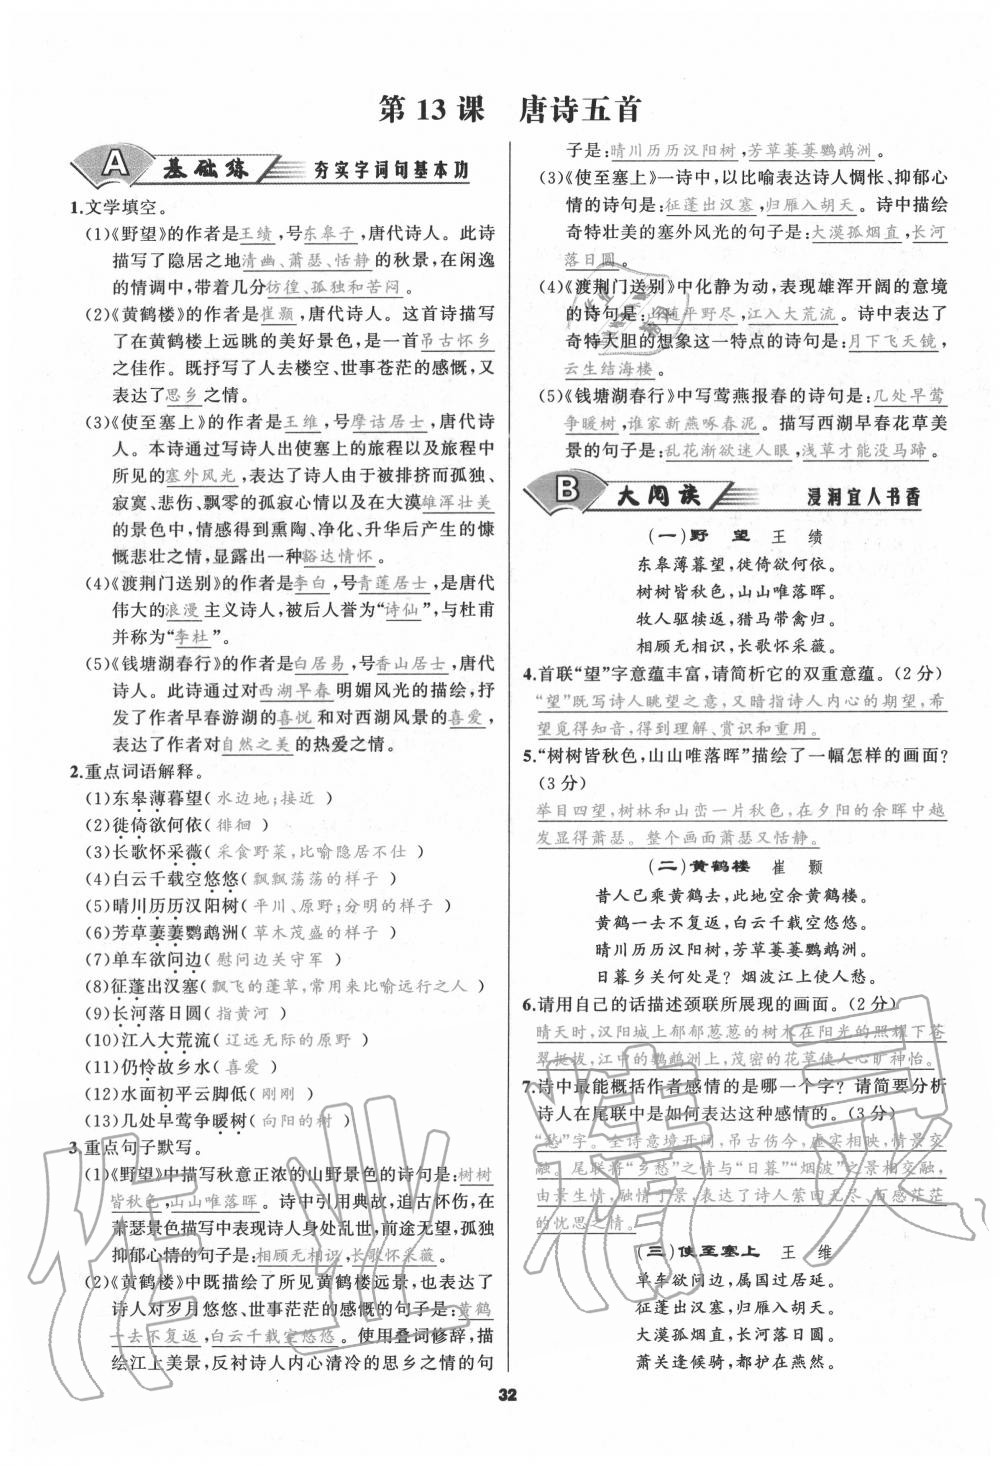 第 13 课　唐诗五首
A 基础练 夯实字词句基本功
1.文学填空。
(1)《野望》的作者是王绩,号东皋子,唐代诗人。此诗
描写了隐居之地清幽、萧瑟、恬静的秋景,在闲逸
的情调中,带着几分彷徨、孤独和苦闷。
(2)《黄鹤楼》的作者是崔颢,唐代诗人。这首诗描写
了在黄鹤楼上远眺的美好景色,是一首吊古怀乡
之佳作。既抒写了人去楼空、世事苍茫的感慨,又
表达了思乡之情。
(3)《使至塞上》的作者是王维,号摩诘居士,唐代诗
人。本诗通过写诗人出使塞上的旅程以及旅程中
所见的塞外风光,表达了诗人由于被排挤而孤独、
寂寞、悲伤、飘零的孤寂心情以及在大漠雄浑壮美
的景色中,情感得到熏陶、净化、升华后产生的慷
慨悲壮之情,显露出一种豁达情怀。
(4)《渡荆门送别》的作者是李白,号青莲居士,是唐代
伟大的浪漫主义诗人,被后人誉为“诗仙”,与杜甫
并称为“李杜”。
(5)《钱塘湖春行》的作者是白居易,号香山居士,唐代
诗人。此诗通过对西湖早春明媚风光的描绘,抒
发了作者早春游湖的喜悦和对西湖风景的喜爱,
表达了作者对自然之美的热爱之情。
2.重点词语解释。
(1)东皋薄暮望( 水边地;接近 )
(2)徙倚欲何依( 徘徊 )
(3)长歌怀采薇( 采食野菜,比喻隐居不仕 )
(4)白云千载空悠悠( 飘飘荡荡的样子 )
(5)晴川历历汉阳树( 平川、原野;分明的样子 )
(6)芳草萋萋鹦鹉洲( 草木茂盛的样子 )
(7)单车欲问边( 慰问边关守军 )
(8)征蓬出汉塞( 飘飞的蓬草,常用来比喻远行之人 )
(9)长河落日圆( 指黄河 )
(10)江入大荒流( 辽远无际的原野 )
(11)仍怜故乡水( 喜爱 )
(12)水面初平云脚低( 刚刚 )
(13)几处早莺争暖树( 向阳的树 )
3.重点句子默写。
(1)《野望》中描写秋意正浓的山野景色的诗句是:树树
皆秋色,山山唯落晖。诗中引用典故,追古怀伤,在
萧瑟景色描写中表现诗人身处乱世,前途无望,孤独
抑郁心情的句子是:相顾无相识,长歌怀采薇。
(2)《黄鹤楼》中既描绘了所见黄鹤楼远景,也表达了
诗人对岁月悠悠、世事茫茫的感慨的句子是:黄鹤
一去不复返,白云千载空悠悠。使用叠词修辞,描
绘江上美景,反衬诗人内心清冷的思乡之情的句
子是:晴川历历汉阳树,芳草萋萋鹦鹉洲。
(3)《使至塞上》一诗中,以比喻表达诗人惆怅、抑郁心
情的诗句是:征蓬出汉塞,归雁入胡天。诗中描绘
奇特壮美的塞外风光的句子是:大漠孤烟直,长河
落日圆。
(4)《渡荆门送别》中化静为动,表现雄浑开阔的意境
的诗句是:山随平野尽,江入大荒流。诗中表达了
奇特大胆的想象这一特点的诗句是:月下飞天镜,
云生结海楼。
(5)《钱塘湖春行》中写莺燕报春的诗句是:几处早莺
争暖树,谁家新燕啄春泥。描写西湖早春花草美
景的句子是:乱花渐欲迷人眼,浅草才能没马蹄。
B 大阅读 浸润宜人书香
(一)野　望　王　绩
东皋薄暮望,徙倚欲何依。
树树皆秋色,山山唯落晖。
牧人驱犊返,猎马带禽归。
相顾无相识,长歌怀采薇。
4.首联“望”字意蕴丰富,请简析它的双重意蕴。(2 分)
“望”既写诗人眺望之意,又暗指诗人内心的期望,希
望觅得知音,得到理解、赏识和重用。
5.“树树皆秋色,山山唯落晖”描绘了一幅怎样的画面?
(3 分)
举目四望,树林和山峦一片秋色,在夕阳的余晖中越
发显得萧瑟。整个画面萧瑟又恬静。
(二)黄鹤楼　崔　颢
昔人已乘黄鹤去,此地空余黄鹤楼。
黄鹤一去不复返,白云千载空悠悠。
晴川历历汉阳树,芳草萋萋鹦鹉洲。
日暮乡关何处是? 烟波江上使人愁。
6.请用自己的话描述颈联所展现的画面。(2 分)
晴天时,汉阳城上郁郁葱葱的树木在阳光的照耀下苍
翠挺拔,江中的鹦鹉洲上,茂密的花草使人心旷神怡。
7.诗中最能概括作者感情的是哪一个字? 请简要分析
诗人在尾联中是如何表达这种感情的。(3 分)
“愁”字。全诗意境开阔,吊古伤今,虚实相映,情景交
融。尾联将“乡愁”之情与“日暮”“烟波”之景相交融,
由景生情,融情于景,表达了诗人萦回无尽、百感茫茫
的忧思之情。
(三)使至塞上　王　维
单车欲问边,属国过居延。
征蓬出汉塞,归雁入胡天。
大漠孤烟直,长河落日圆。
萧关逢候骑,都护在燕然。
32
作业精灵